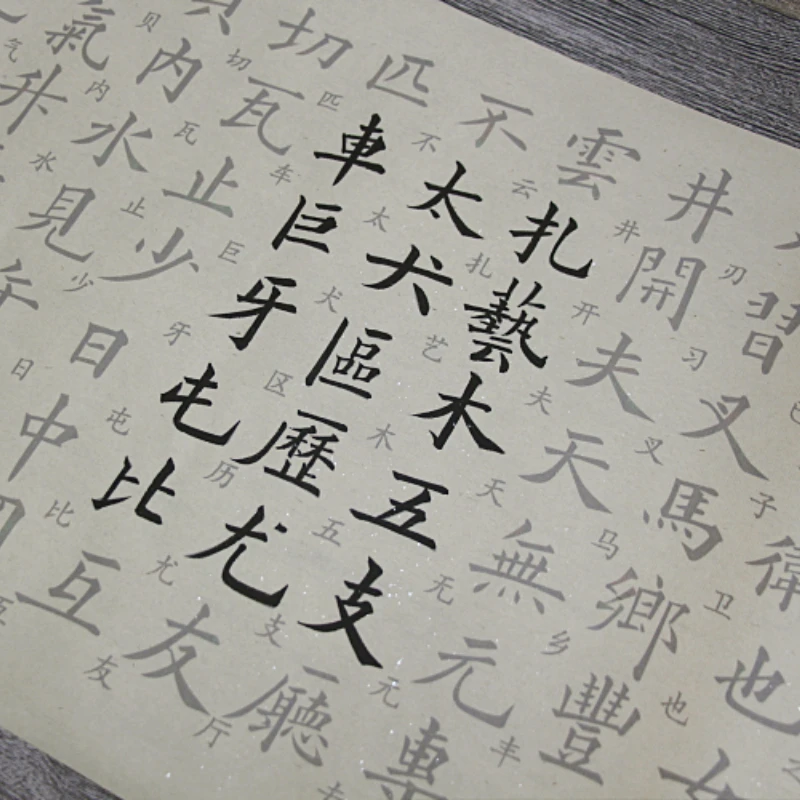 習习叉叉馬马鄉乡豐丰
子衛卫也也女
井井開开夫夫天天無无元元專专
雲云扎扎藝艺木木五五支支廳厅
不不太太犬犬區区歷历尤尤友友
匹匹車车巨巨牙牙屯屯比比互互
切切瓦瓦止止少少日日中
贝內内水水見
氣气升